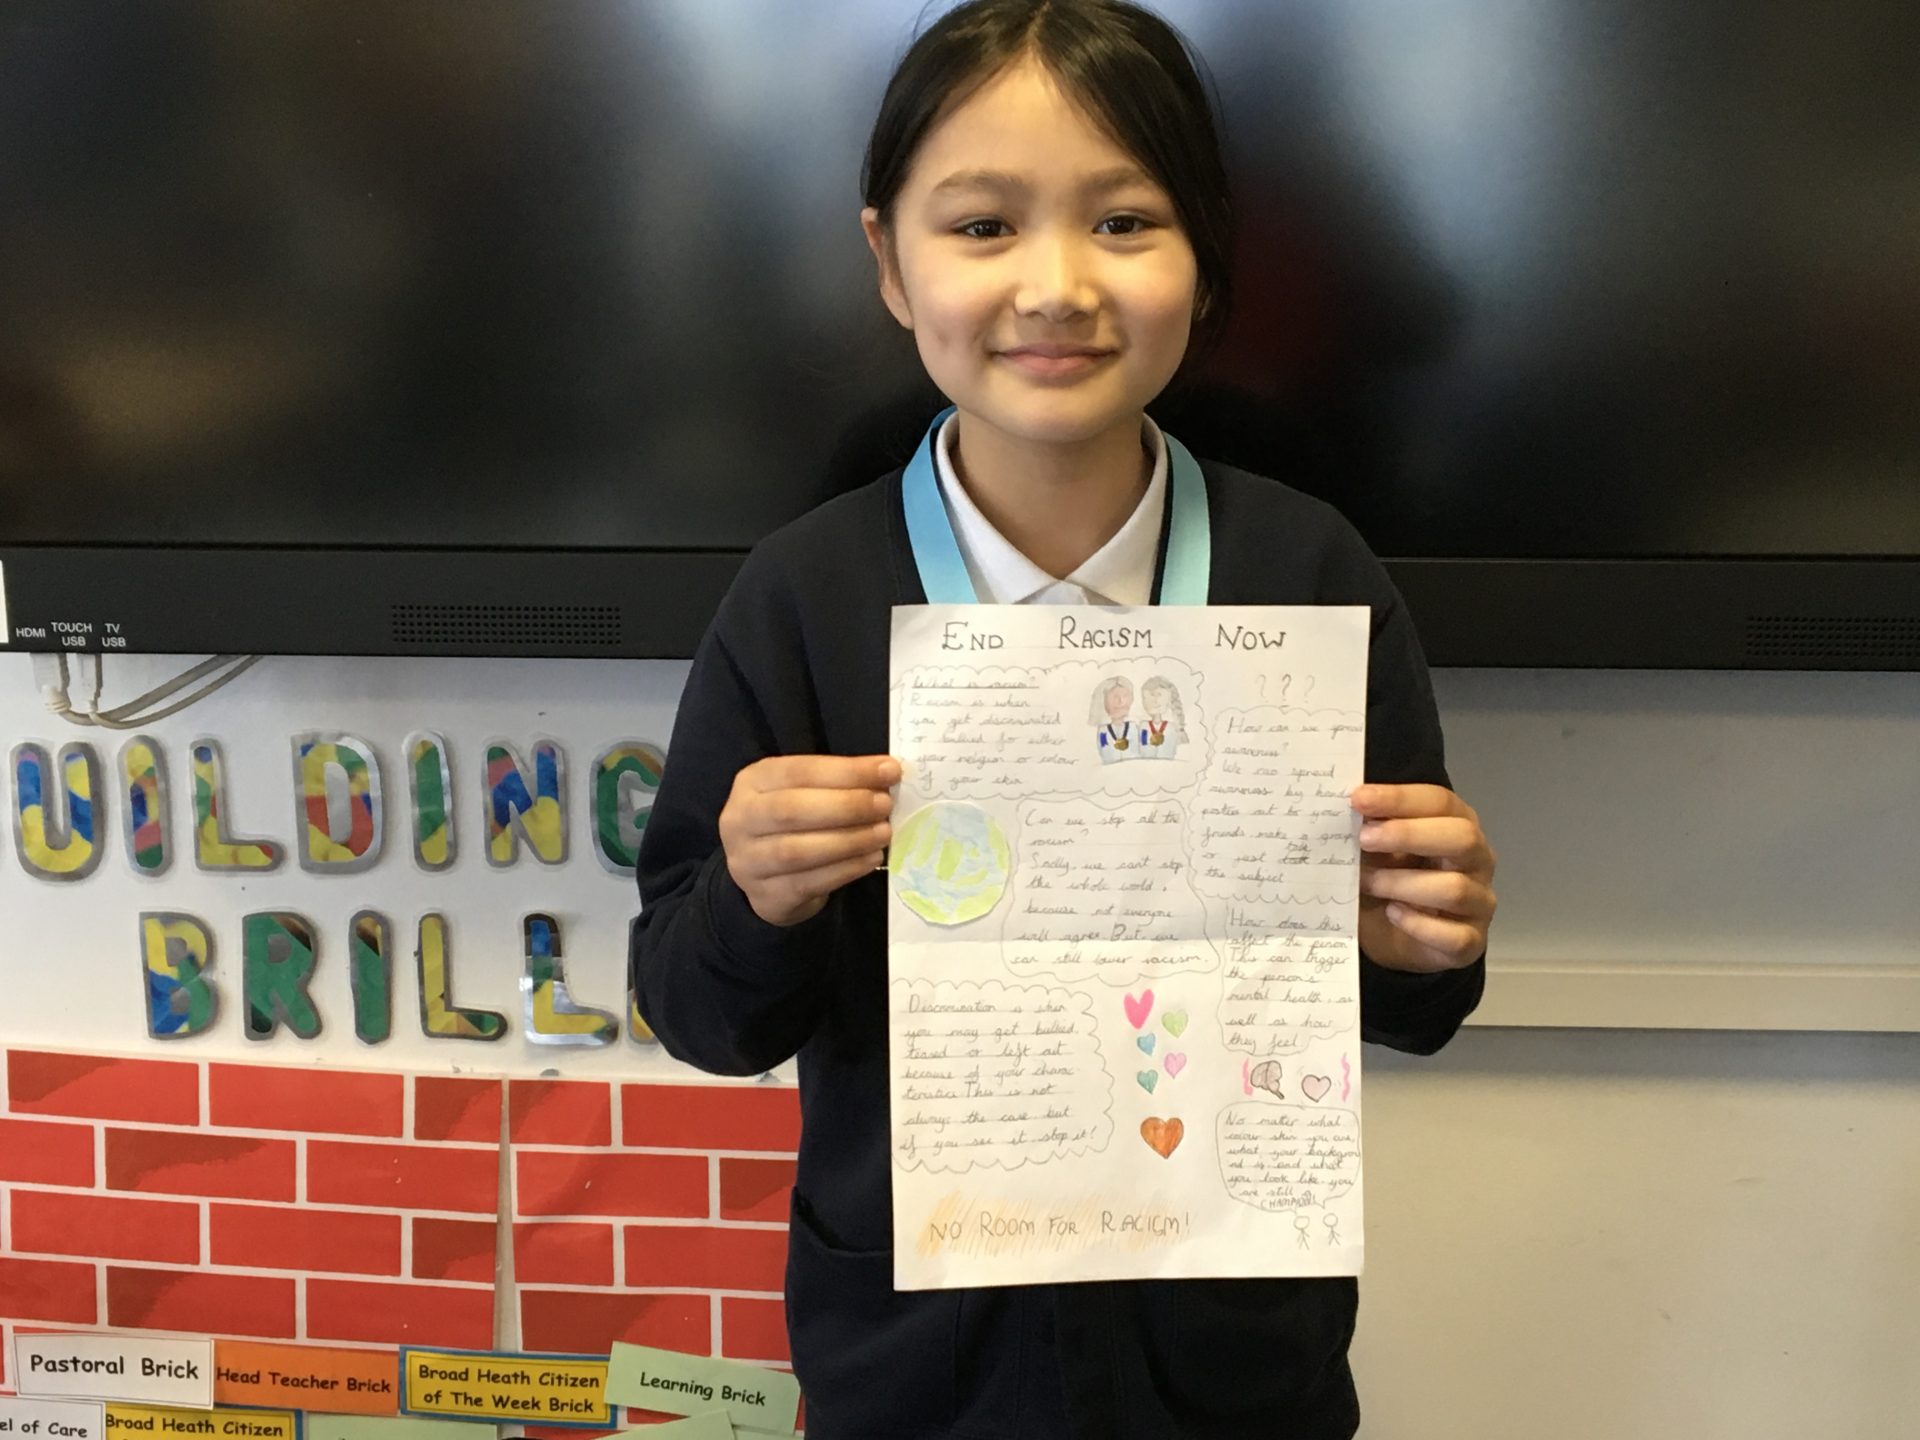 HDMI
TOUCH
USB
TV
USB
UILDING
BRILL
Pastoral Brick
Head Teacher Brick
Broad Heath Citizen
of The Week Brick
Learning Brick
el of Care
Broad Heath Citizen
END RACISM NOW
What is racism?
Racism is when
you get discriminated
or bullied for either
your religion or colour
of your skin
? ? ?
How can we spread
awareness?
We can spread
awareness by handi
posters out to your
friends, make a group
or just talk about
the subject
Can we stop all the
racism?
Sadly, we can't stop
the whole world,
because not everyone
will agree. But, we
can still lower racism.
How does this
affect the person?
This can trigger
the person's
mental health, as
well as how
they feel.
Discrimination is when
you may get bullied,
teased or left out
because of your charac-
teristics. This is not
always the case, but
if you see it, stop it!
No matter what
colour skin you are,
what your backgrou
nd is and what
you look like, you
are still a
CHAMPION!
NO ROOM FOR RACISM!